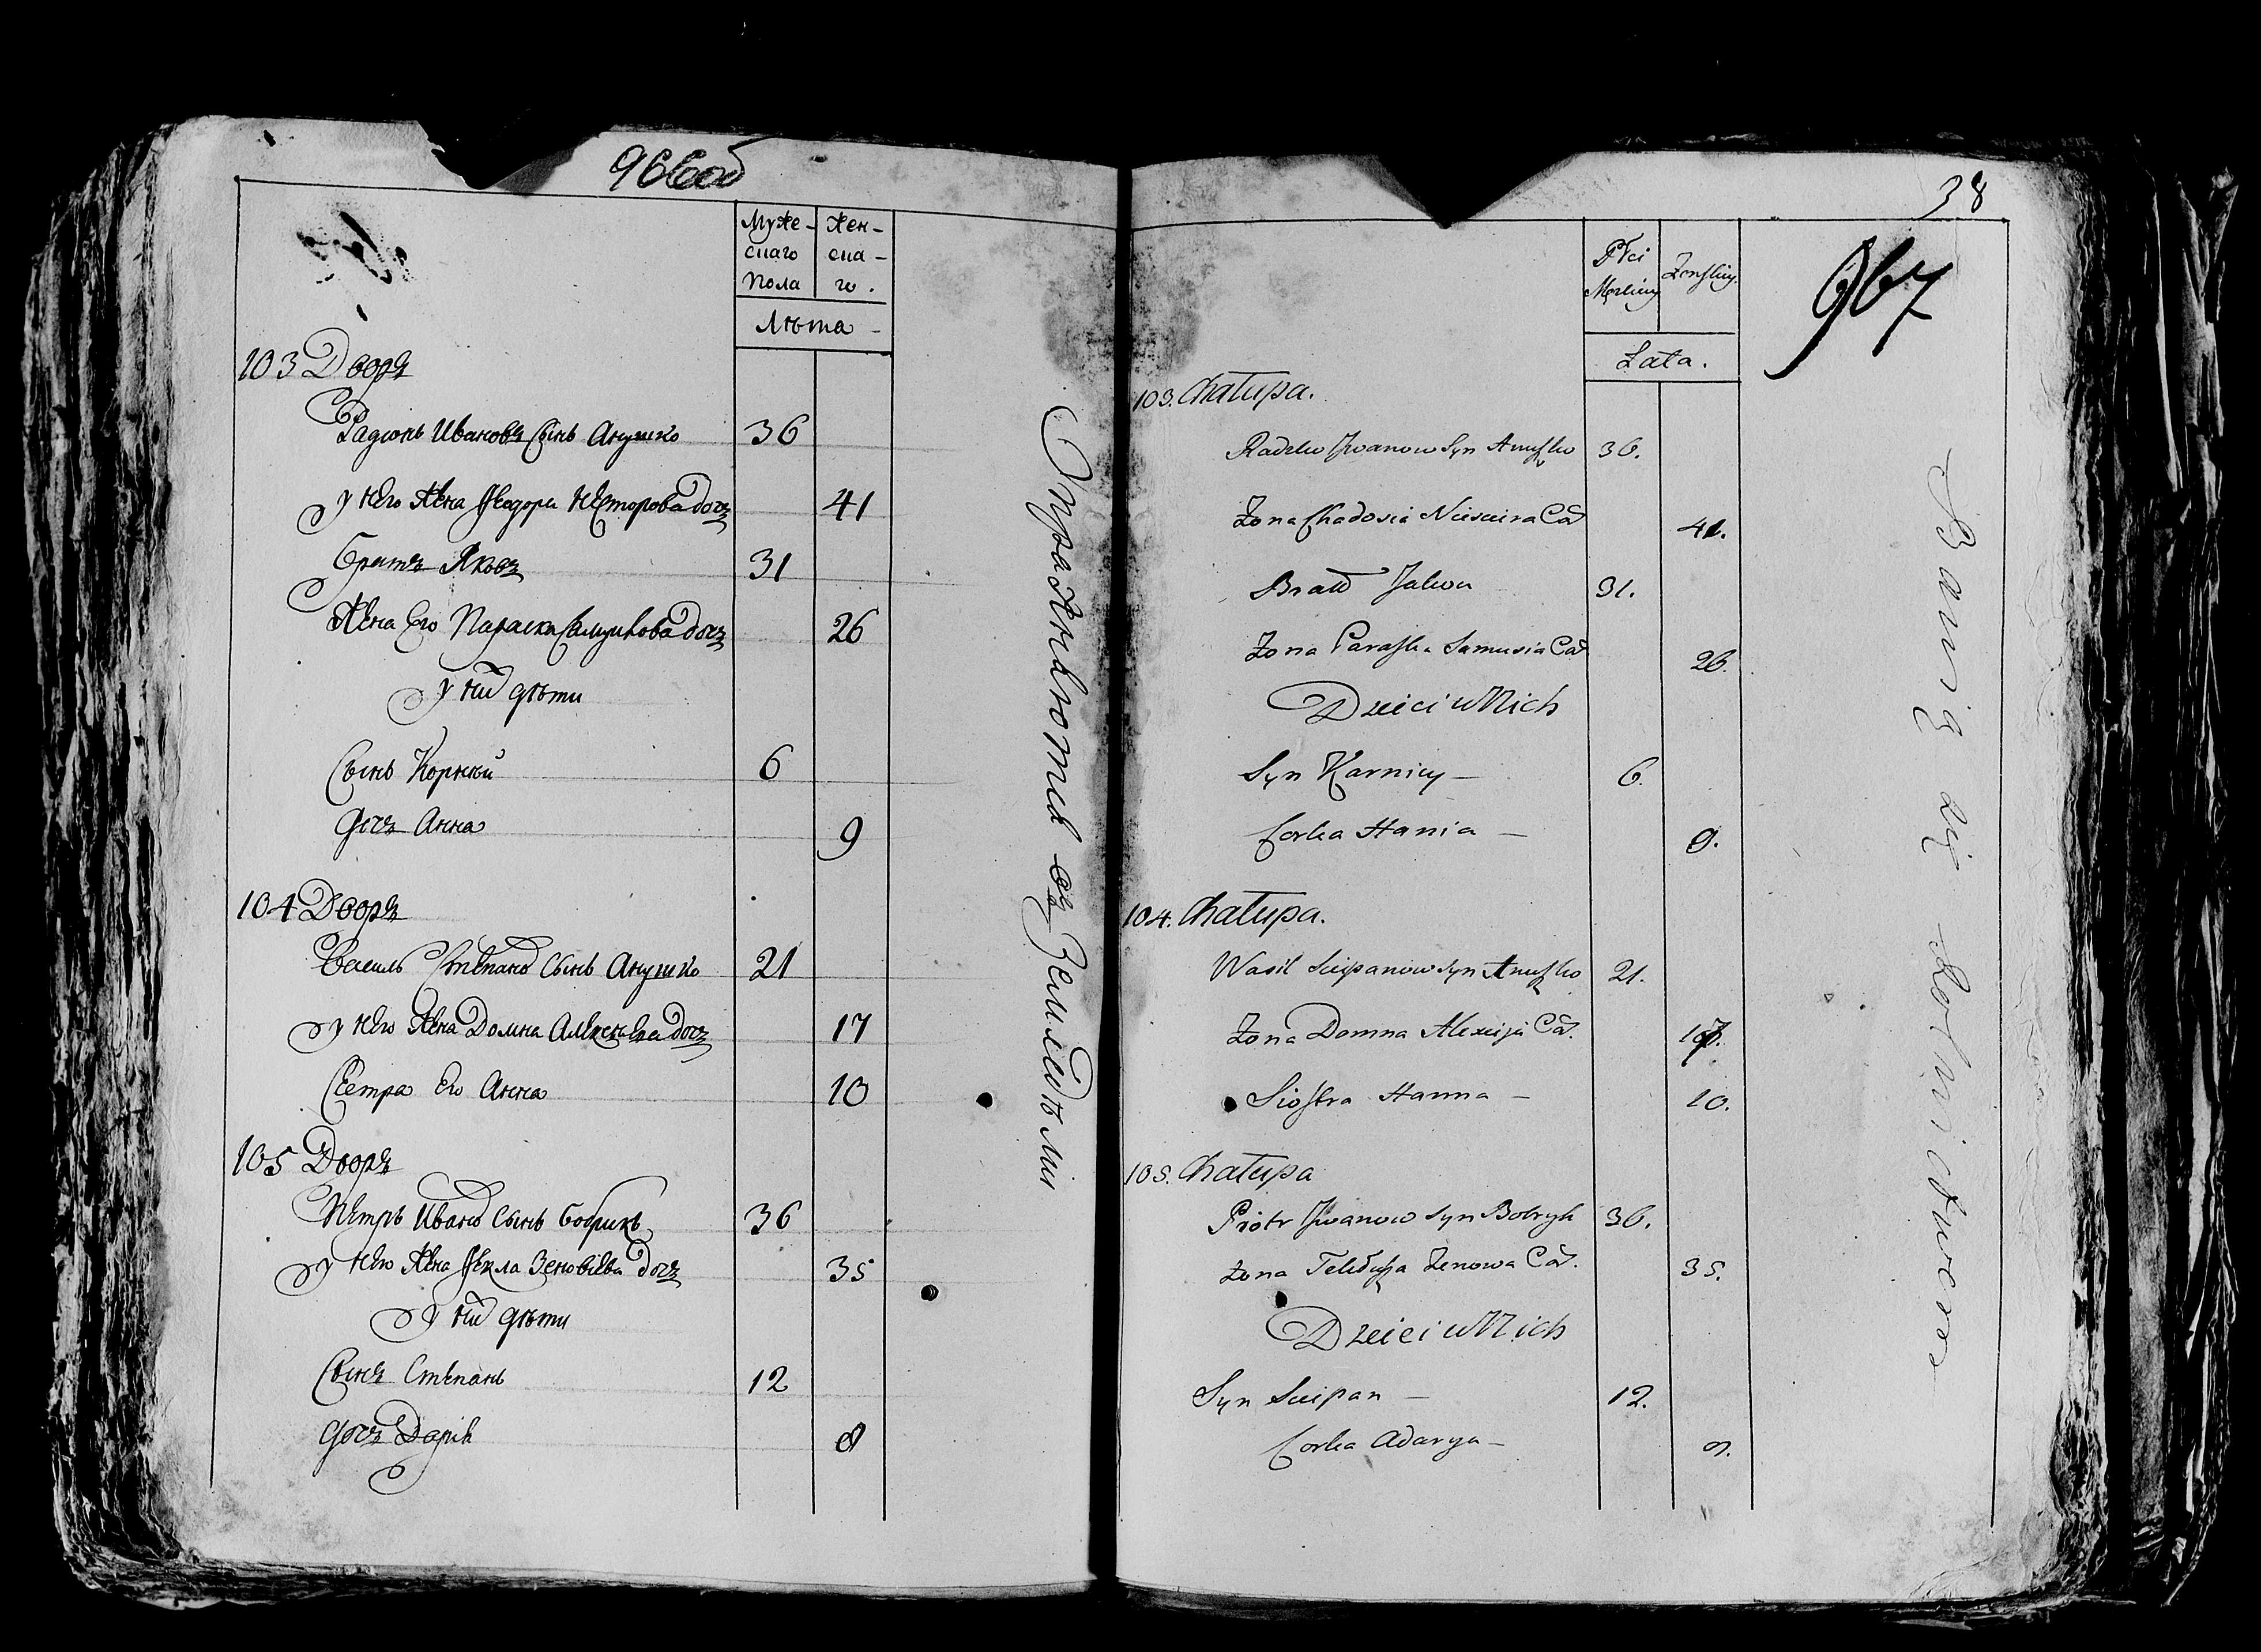 966об
Муже- Жен-
скаго ска-
пола го.
Лѣта
103 Дворъ
Радионъ Ивановъ Сынъ Анушко 36
у него Жена Феодора Несторова дочь 41
Братъ Яковъ 31
Жена Его Параска Самуилова дочь 26
у ни дѣти
Сынъ Корней 6
дочь Анна 9
104 Дворъ
Василь Степано Сынъ Анушко 21
у него Жена Домна Алексеева дочь 17
Сестра Его Анна 10
105 Дворъ
Петръ Ивано Сынъ Бобрикъ 36
у него Жена Фекла Зеновіева дочь 35
у ни дѣти
Сынъ Степанъ 12
дочь Дарія 8
Упражняютея въ Земледѣліи
38
967
Płci Męskiey Żenskiey
Lata.
103. Chałupa.
Radzko Jwanow Syn Anuszko 36.
Żona Chadosia Niesciera Cór 41.
Bratt Jakow 31.
Żona Paraska Samusia Cór 26.
Dzieci u Nich
Syn Karniey 6.
Corka Hania 9.
104. Chałupa.
Wasil Sciepanow Syn Anuszko 21.
Żona Domna Alexieja Cór. 17.
Siostra Hanna 10.
105. Chałupa
Piotr Jwanow Syn Bobryk 36.
Żona Teklusza Zenowa Cór. 35.
Dzieci u Nich
Syn Sciepan 12.
Corka Adarya
Bawią się Rolnictwem